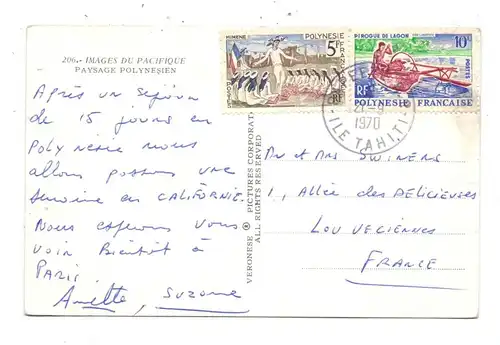 206.- IMAGES DU PACIFIQUE
PAYSAGE POLYNESIEN
Après un séjour
de 15 jours en
Polynésie nous
allons passer une
semaine en CALIFORNIE.
Nous espérons vous
voir bientôt à
PARIS
Annette, Suzanne
VERONESE ® PICTURES CORPORAT
ALL RIGHTS RESERVED
HIMENE
POLYNESIE FRANÇAISE
5F
POSTES
RF
PIROGUE DE LAGON
10F
POSTES
RF
POLYNESIE FRANÇAISE
21-9
1970
ILE TAHITI
Mr et Mrs SWINERS
1, Allée des DÉLICIEUSES
LOUVECIENNES
FRANCE